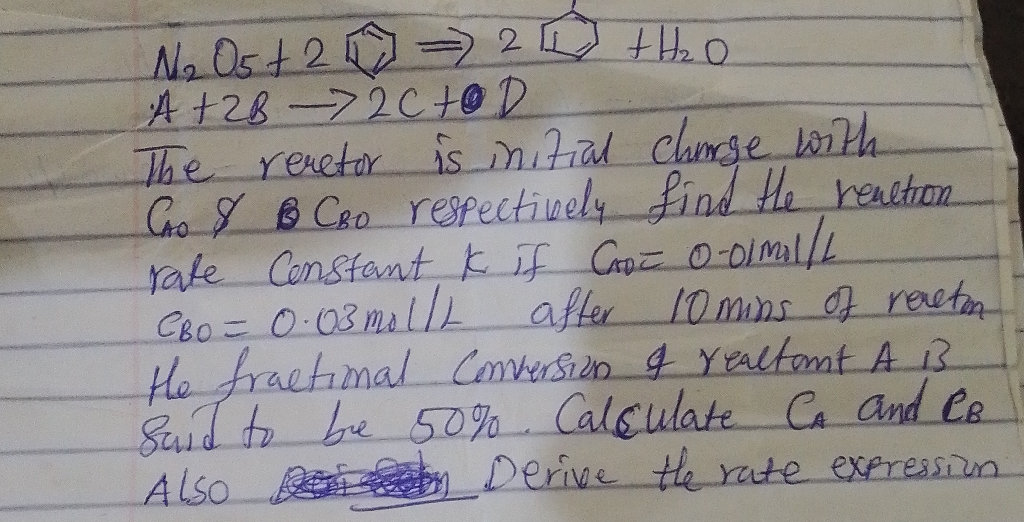 N₂O₅ + 2 ⇒ 2 + H₂O
A + 2B → 2C + D
The reactor is initial charge with
CAO & CBO respectively find the reaction
rate Constant K if CAO = 0.01 mol/L
CBO = 0.03 mol/L after 10 mins of reactn
the fractional Conversion of reactant A is
said to be 50%. Calculate CA and CB
Also Derive the rate expression